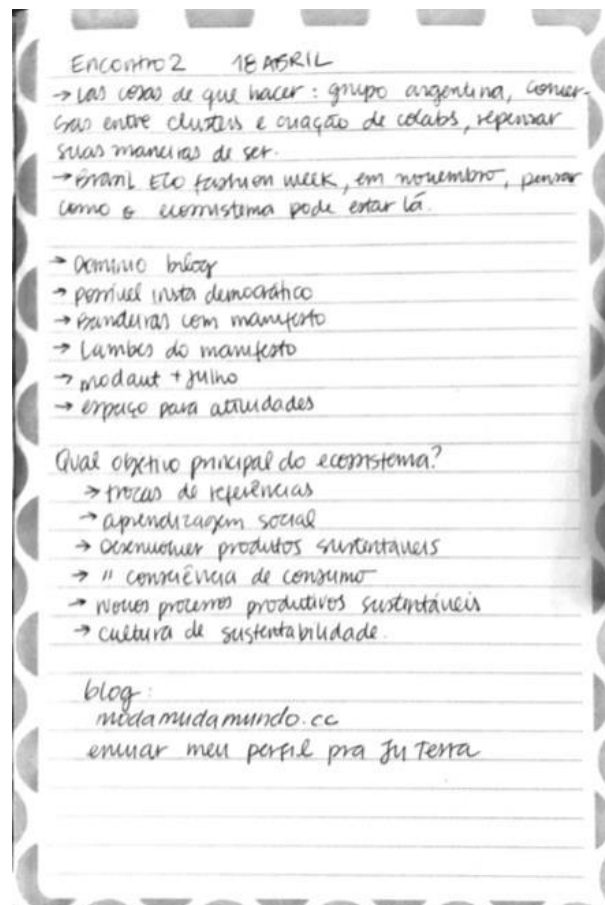 Encontro 2 18 ABRIL
→ Las cosas de que hacer: grupo argentina, conver-
sas entre clusters e criação de colabs, repensar
suas maneiras de ser.
→ Brasil Eco fashion week, em novembro, pensar
como o ecossistema pode estar lá.
→ Dominio blog
→ possível insta democrático
→ Bandeiras com manifesto
→ Lambes do manifesto
→ modaut + julho
→ espaço para atividades
Qual objetivo principal do ecossistema?
→ trocas de referências
→ aprendizagem social
→ Desenvolver produtos sustentáveis
→ " consciência de consumo
→ novos processos produtivos sustentáveis
→ cultura de sustentabilidade.
blog:
modamudamundo.cc
enviar meu perfil pra Ju Terra